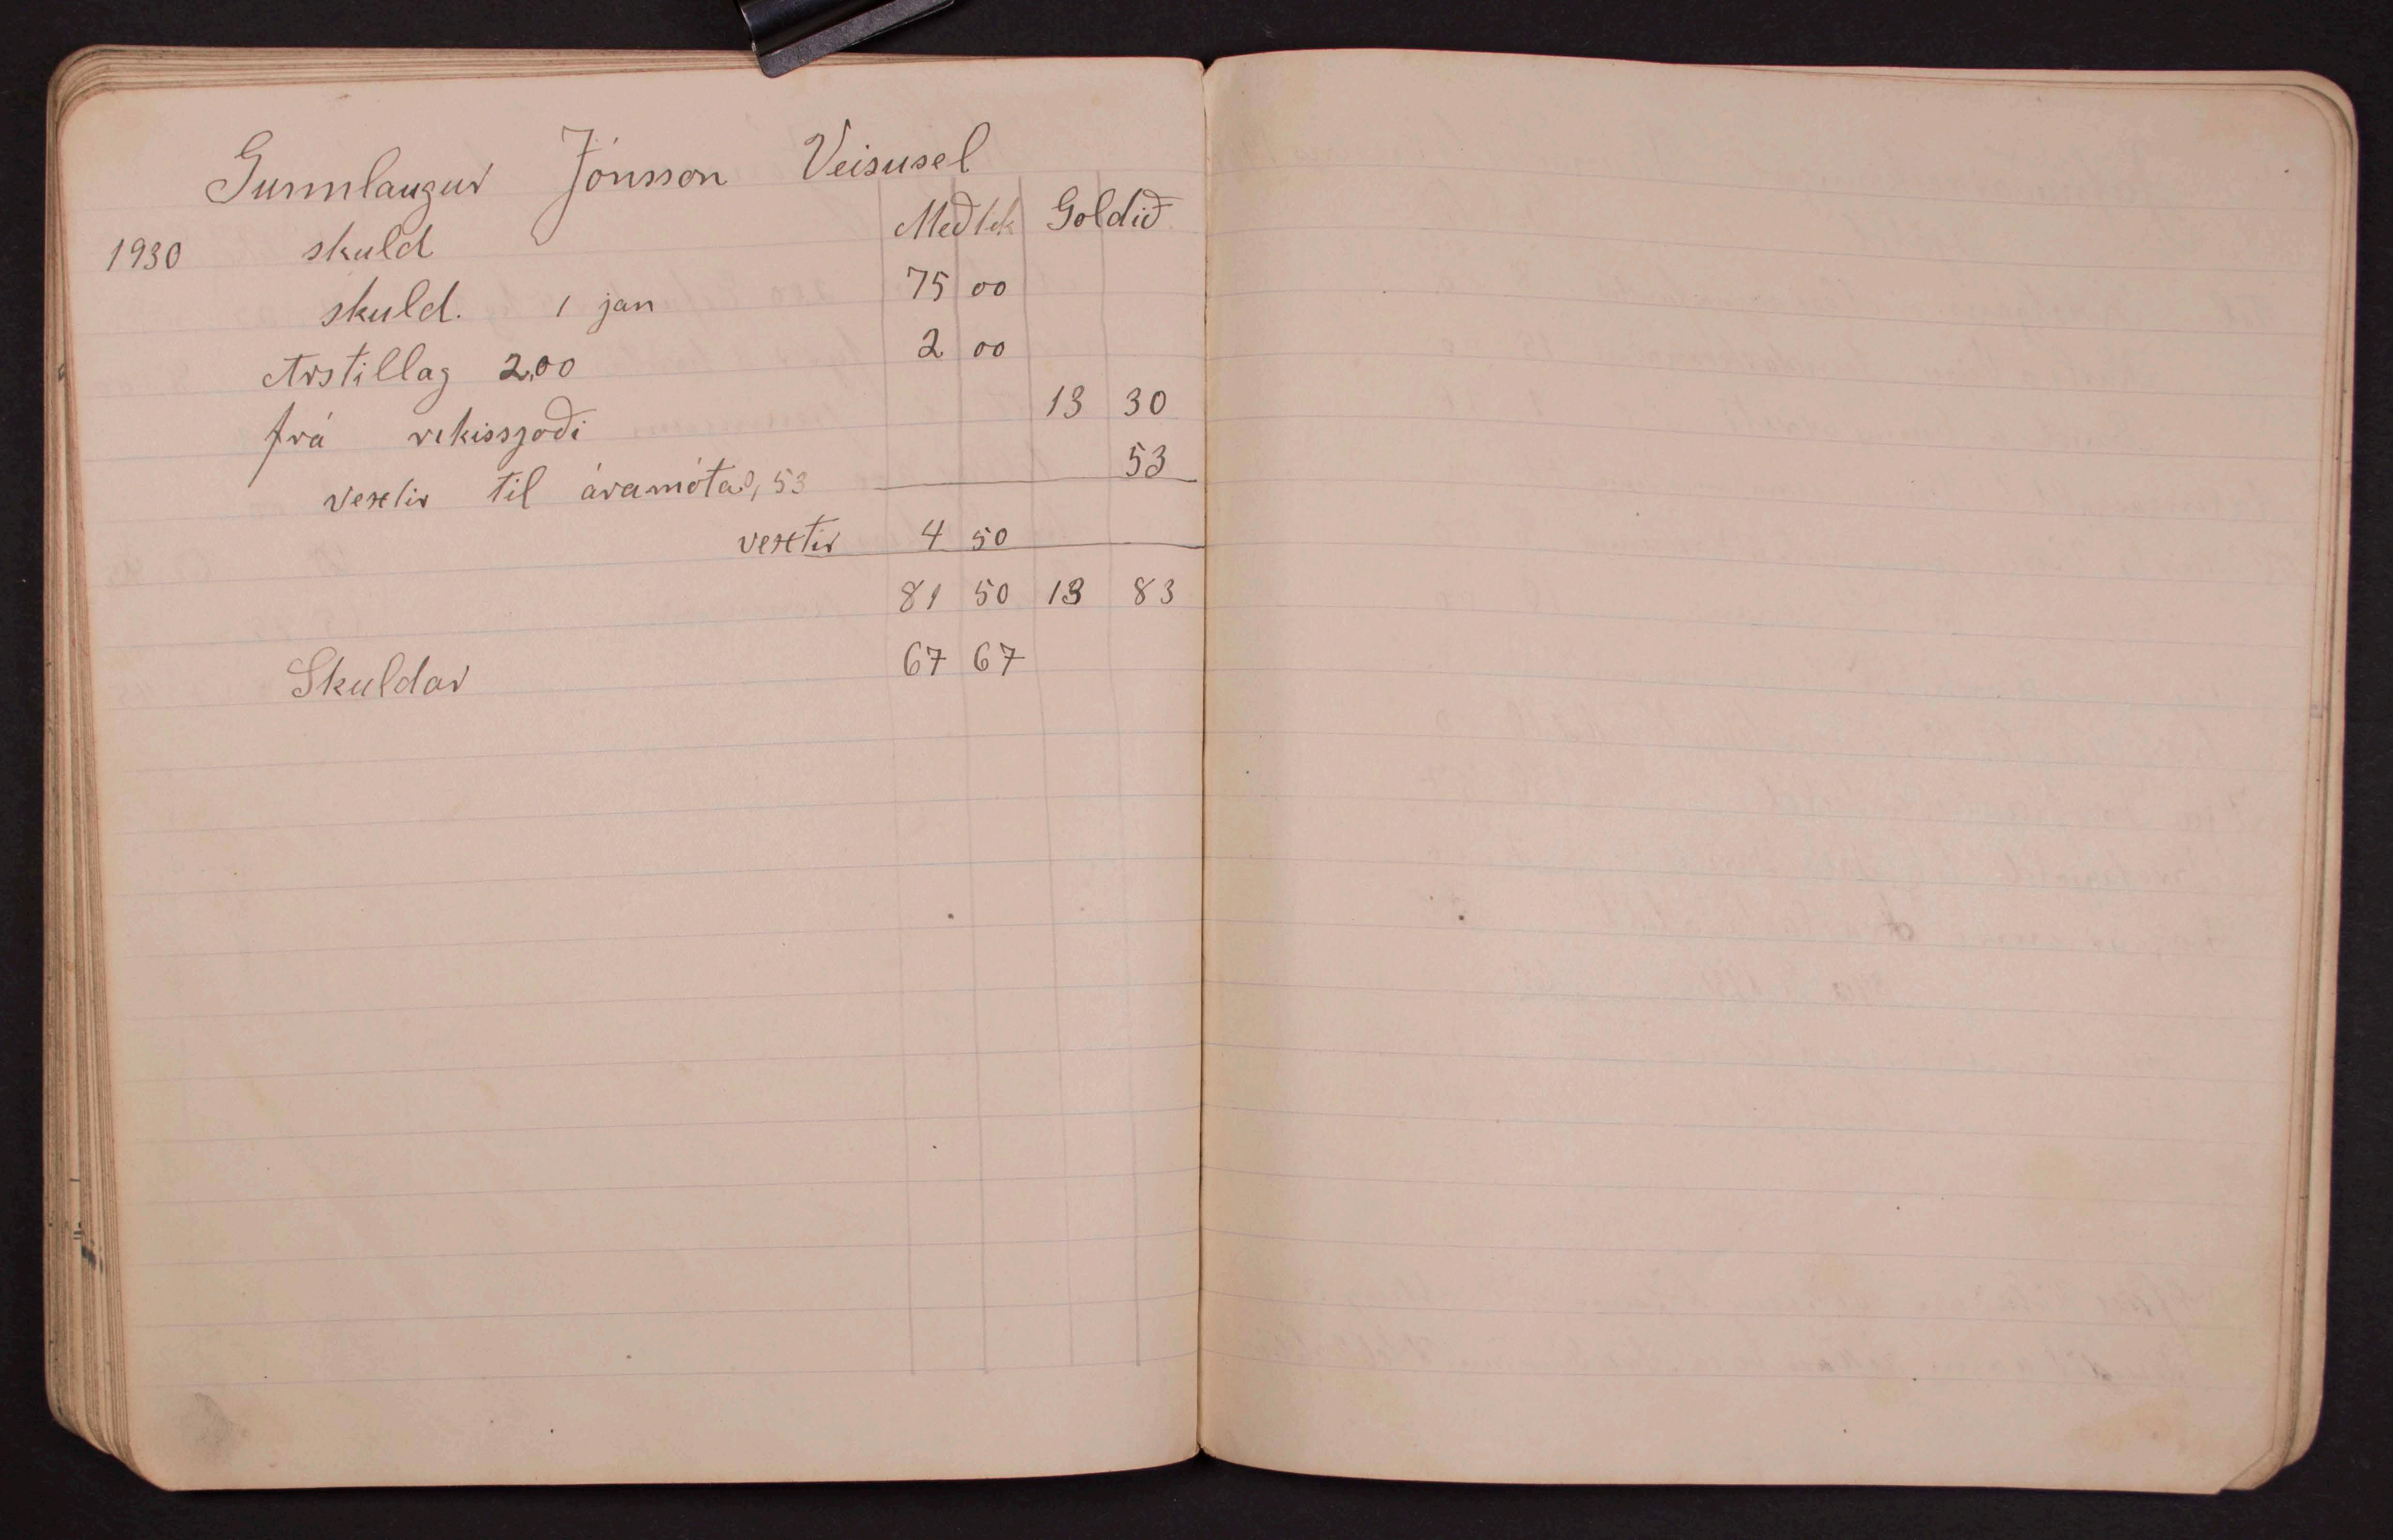 Gunnlaugur Jónsson Veisusel
Meðtek Goldið
1930 skuld
skuld. 1 jan 75 00
Arstillag 2,00 2 00
frá rikissjoði 13 30
vextir til áramóta 0,53 53
vextir 4 50
81 50 13 83
Skuldar 67 67